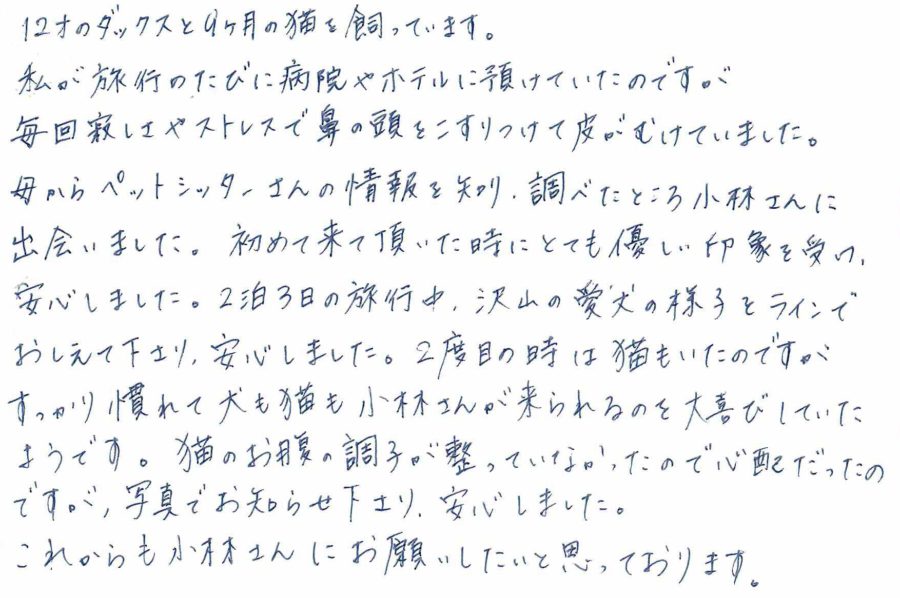 12才のダックスと9ヶ月の猫を飼っています。
私が旅行のたびに病院やホテルに預けていたのですが
毎回寂しさやストレスで鼻の頭をこすりつけて皮がむけていました。
母からペットシッターさんの情報を知り、調べたところ小林さんに
出会いました。初めて来て頂いた時にとても優しい印象を受け、
安心しました。2泊3日の旅行中、沢山の愛犬の様子をラインで
おしえて下さり、安心しました。2度目の時は猫もいたのですが
すっかり慣れて犬も猫も小林さんが来られるのを大喜びしていた
ようです。猫のお腹の調子が整っていなかったので心配だったの
ですが、写真でお知らせ下さり、安心しました。
これからも小林さんにお願いしたいと思っております。